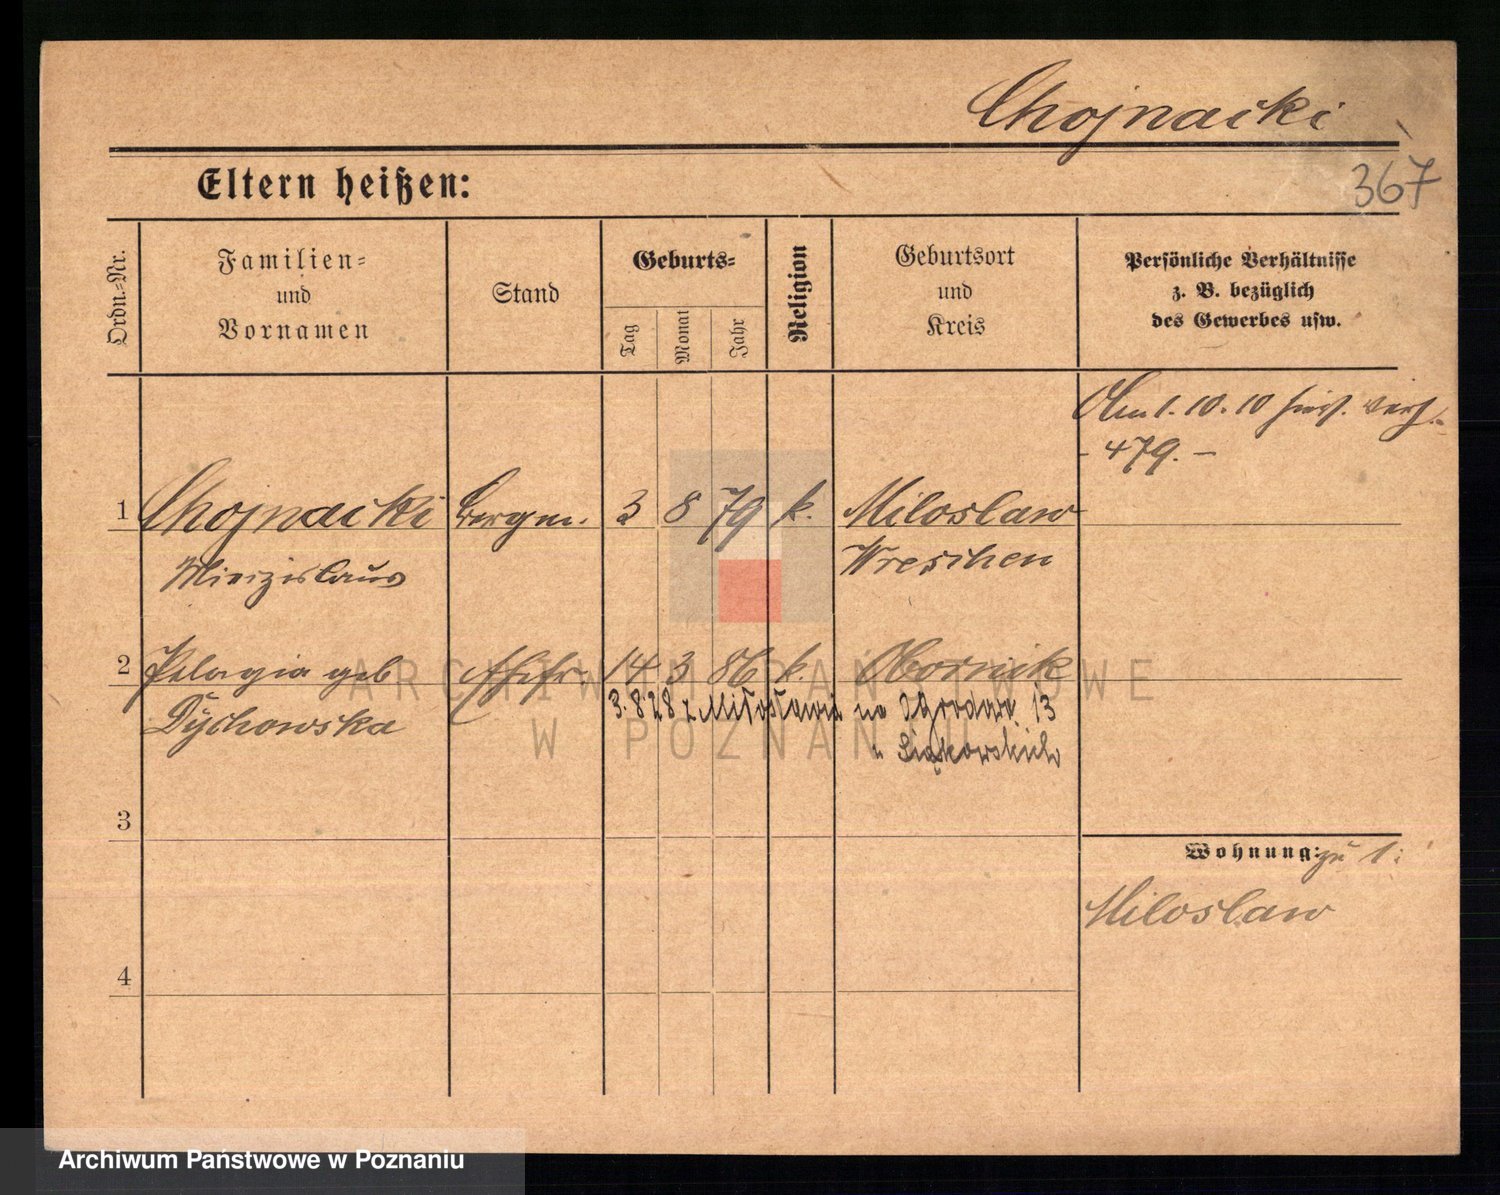 Chojnacki
367
Eltern heißen:
Ordn.-Nr.
Familien-
und
Vornamen
Stand
Geburts-
Tag
Monat
Jahr
Religion
Geburtsort
und
Kreis
Persönliche Verhältnisse
z. B. bezüglich
des Gewerbes usw.
Am 1. 10. 10
- 479. -
1 Chojnacki Bergm. 3 8 79 k. Miloslaw
Miecislaus Wreschen
2 Pelagia geb Ehefr. 14 3 86 k. Obornik
Dychowska
3.8.28 z Miłosławia na Ogrodowe 13
u
3
Wohnung: zu 1:
Miloslaw
4
ARCHIWUM PAŃSTWOWE
W POZNANIU
Archiwum Państwowe w Poznaniu